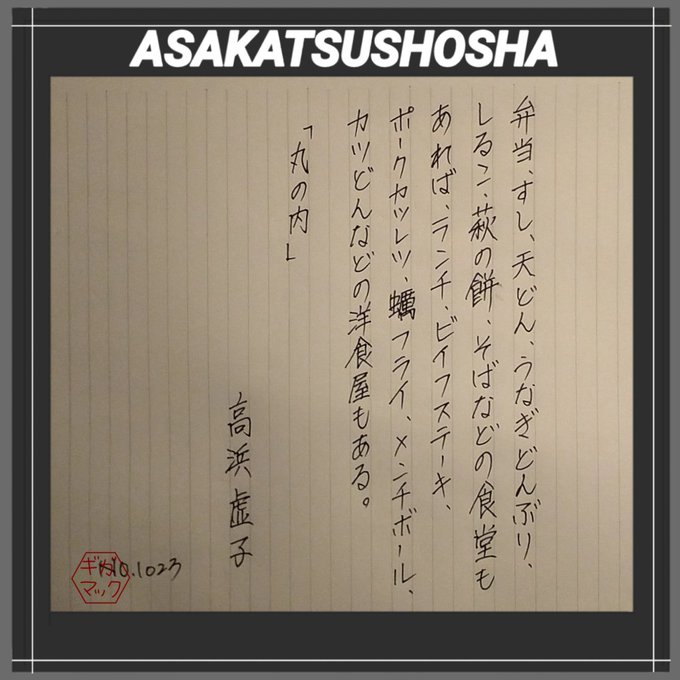 ASAKATSUSHOSHA
弁当、すし、天どん、うなぎどんぶり、
しるこ、萩の餅、そばなどの食堂も
あれば、ランチ、ビイフステーキ、
ポークカツレツ、蠣フライ、メンチボール、
カツどんなどの洋食屋もある。
「丸の内」
高浜虚子
NO.1023
ギガ
マック